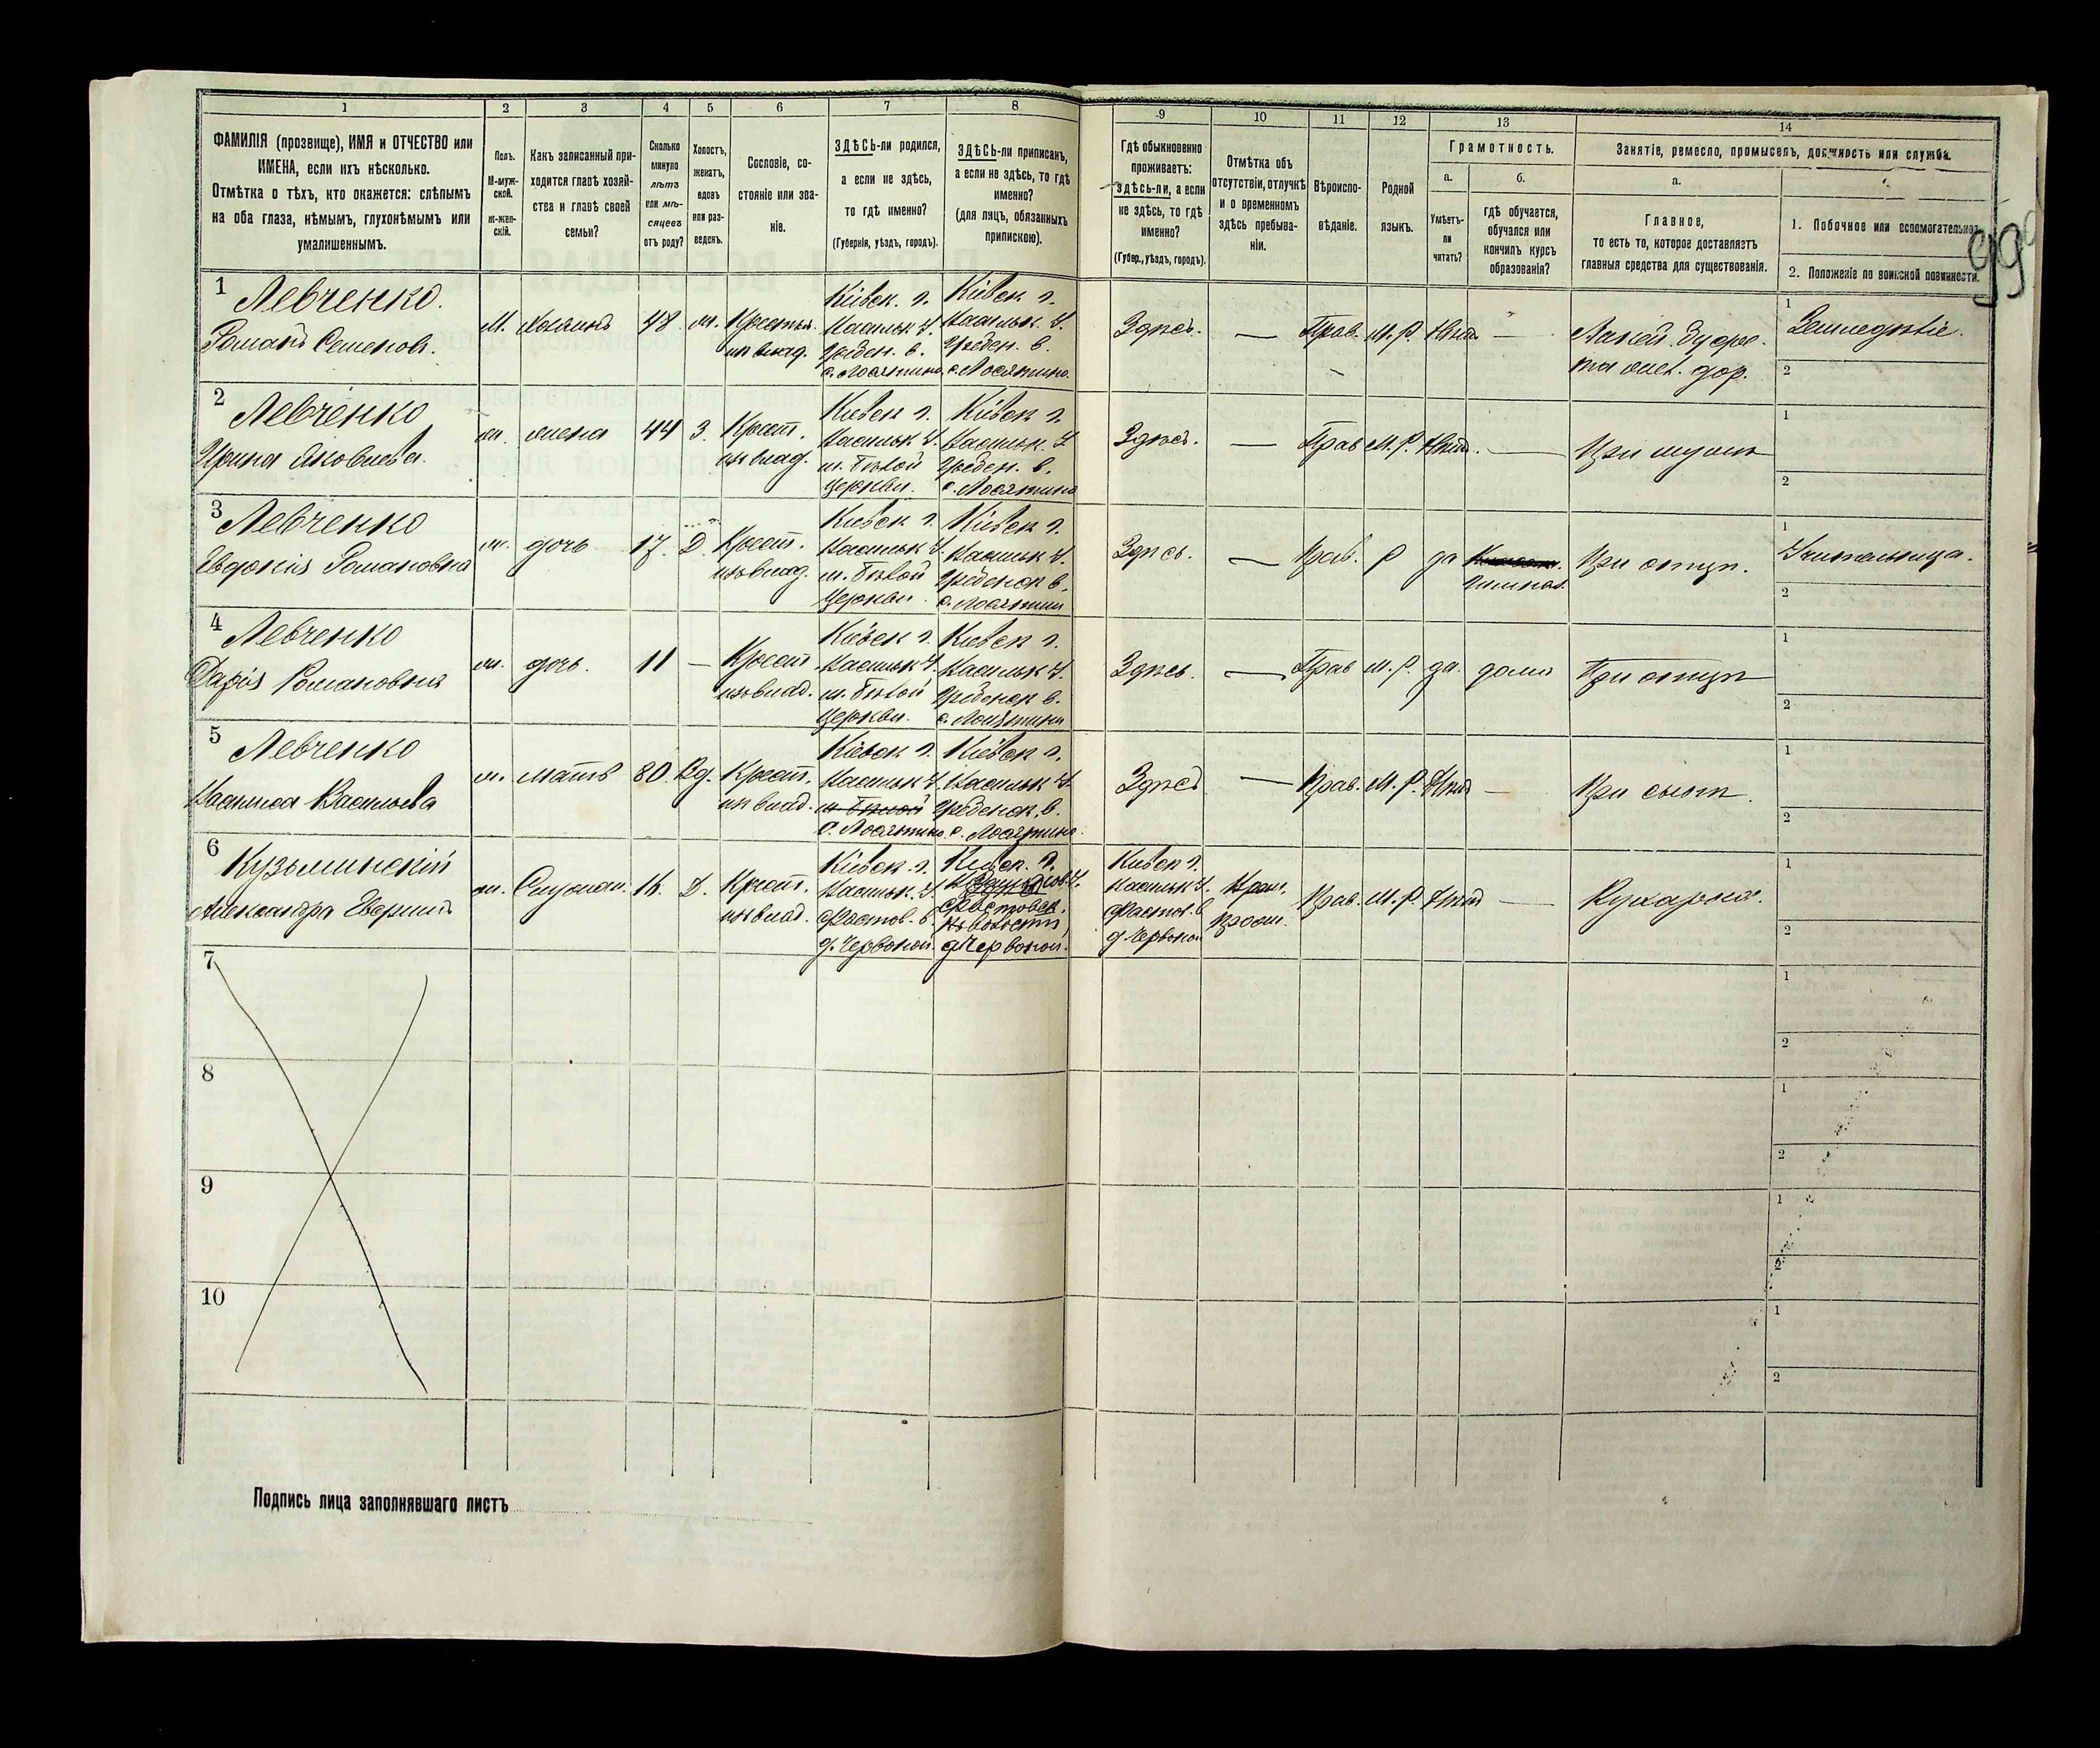 1 2 3 4 5 6 7 8 9 10 11 12 13 14
ФАМИЛІЯ (прозвище), ИМЯ и ОТЧЕСТВО или
ИМЕНА, если ихъ нѣсколько.
Отмѣтка о тѣхъ, кто окажется: слѣпымъ
на оба глаза, нѣмымъ, глухонѣмымъ или
умалишеннымъ.
Полъ.
М-муж-
ской.
ж-жен-
скій.
Какъ записанный при-
ходится главѣ хозяй-
ства и главѣ своей
семьи?
Сколько
минуло
лѣтъ
или мѣ-
сяцевъ
отъ роду?
Холостъ,
женатъ,
вдовъ
или раз-
веденъ.
Сословіе, со-
стояніе или зва-
ніе.
ЗДѢСЬ-ли родился,
а если не здѣсь,
то гдѣ именно?
(Губернія, уѣздъ, городъ).
ЗДѢСЬ-ли приписанъ,
а если не здѣсь, то гдѣ
именно?
(для лицъ, обязанныхъ
припискою).
Гдѣ обыкновенно
проживаетъ:
здѣсь-ли, а если
не здѣсь, то гдѣ
именно?
(Губер., уѣздъ, городъ).
Отмѣтка объ
отсутствіи, отлучкѣ
и о временномъ
здѣсь пребыва-
ніи.
Вѣроиспо-
вѣданіе.
Родной
языкъ.
Грамотность.
а.
Умѣетъ-
ли
читать?
б.
гдѣ обучается,
обучался или
кончилъ курсъ
образованія?
Занятіе, ремесло, промыселъ, должность или служба.
а.
Главное,
то есть то, которое доставляетъ
главныя средства для существованія.
1. Побочное или вспомогательное
2. Положеніе по воинской повинности.
99
1
Левченко.
Романъ Семеновъ.
М.
хозяинъ
48
ж.
Крестья.
изъ влад.
Кіевск. г.
Васильк. у.
Гребен. в.
с. Лосятино
Кіевск г.
Васильк. у.
Гребен. в.
с. Лосятино.
Здѣсь.
—
Прав.
М. Р.
Нѣтъ.
—
1
Земледѣліе.
2
2
Левченко
Ирина Яковлева.
ж.
жена
44
З.
Крест.
изъ влад.
Кіевск г.
Васильк у.
м. Бѣлой
Церкви.
Кіевск г.
Васильк. у
Гребен. в.
с. Лосятино
Здѣсь.
—
Прав
М. Р.
Нѣтъ.
—
При мужѣ
1
2
3
Левченко
Евдокія Романовна
ж.
дочь
17.
Д.
Крест.
изъ влад.
Кіевск г.
Васильк у.
м. Бѣлой
Церкви.
Кіевск г.
Васильк у.
Гребенск в.
с. Лосятини
Здѣсь.
—
Прав.
Р
да
гимназ.
При отцѣ.
1
Учительница.
2
4
Левченко
Дарія Романовна
ж.
дочь.
11
—
Крест
изъ влад.
Кіевск г.
Васильк у.
м. Бѣлой
Церкви.
Кіевск г.
Васильк у.
Гребенск в.
с. Лосятини
Здѣсь.
—
Прав
М. Р.
да.
дома
При отцѣ
1
2
5
Левченко
Васильева
ж.
мать
80.
Вд.
Крест.
изъ влад.
Кіевск г.
Васильк у
м. Бѣлой
с. Лосятино
Кіевск г.
Васильк у.
Гребенск. в.
с. Лосятино.
Здѣсь
—
Прав.
М. Р.
Нѣтъ
—
При сынѣ.
1
2
6
Кузьминскій
Александра
ж.
Служан.
16.
Д.
Крест.
изъ влад.
Кіевск. г.
Васильк. у
Фастов. в.
д. Червоной.
Кіевск. г.
Фастовск.
волости
д. Червоной.
Кіевск г.
Васильк у.
Фастов. в
д Червоной
Прав.
М. Р
Нѣтъ
—
Кухарка.
1
2
7
1
2
8
1
2
9
1
2
10
1
2
Подпись лица заполнявшаго листъ